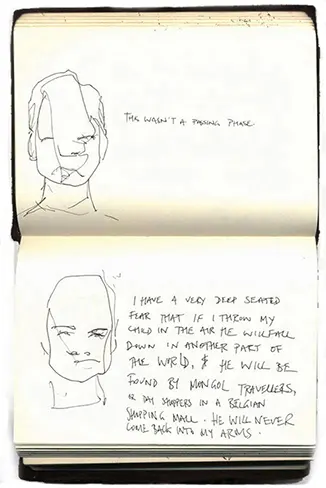 THIS WASN'T A PASSING PHASE
I HAVE A VERY DEEP SEATED
FEAR THAT IF I THROW MY
CHILD IN THE AIR HE WILL FALL
DOWN IN ANOTHER PART OF
THE WORLD, & HE WILL BE
FOUND BY MONGOL TRAVELLERS,
OR DAY SHOPPERS IN A BELGIAN
SHOPPING MALL. HE WILL NEVER
COME BACK INTO MY ARMS.